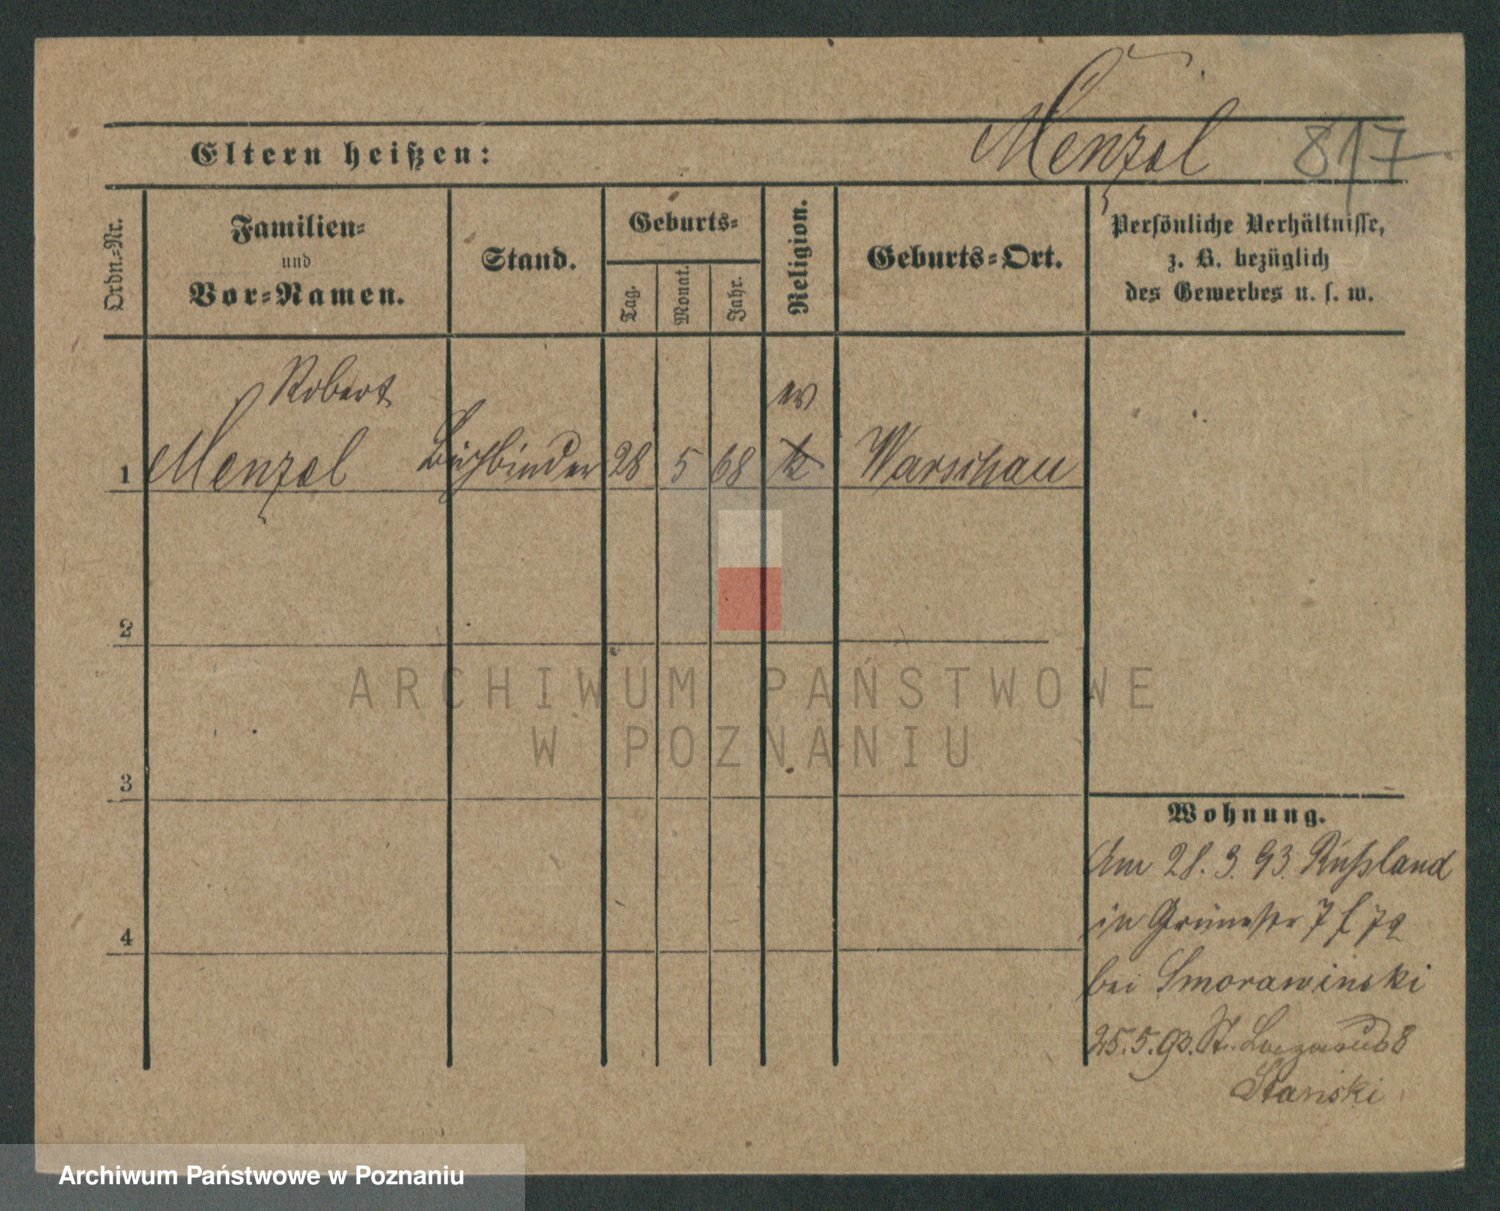 Menzel 817
Eltern heißen:
Ordn.-Nr.
Familien-
und
Vor-Namen.
Stand.
Geburts-
Tag.
Monat.
Jahr.
Religion.
Geburts-Ort.
Persönliche Verhältnisse,
z. B. bezüglich
des Gewerbes u. s. w.
Robert
ev
1 Menzel Buchbinder 28 5 68 k Warschau
2
3
4
ARCHIWUM PAŃSTWOWE
W POZNANIU
Wohnung.
Am 28. 3. 93. Rußland
in Grünestr 7
bei Smorawinski
25.5.93. St. Lazarus 8
Stanski
Archiwum Państwowe w Poznaniu